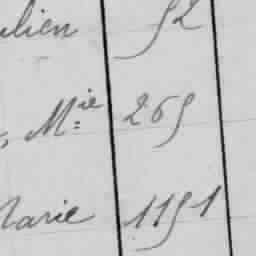 ulien 52
s Mie 265
Marie 1151